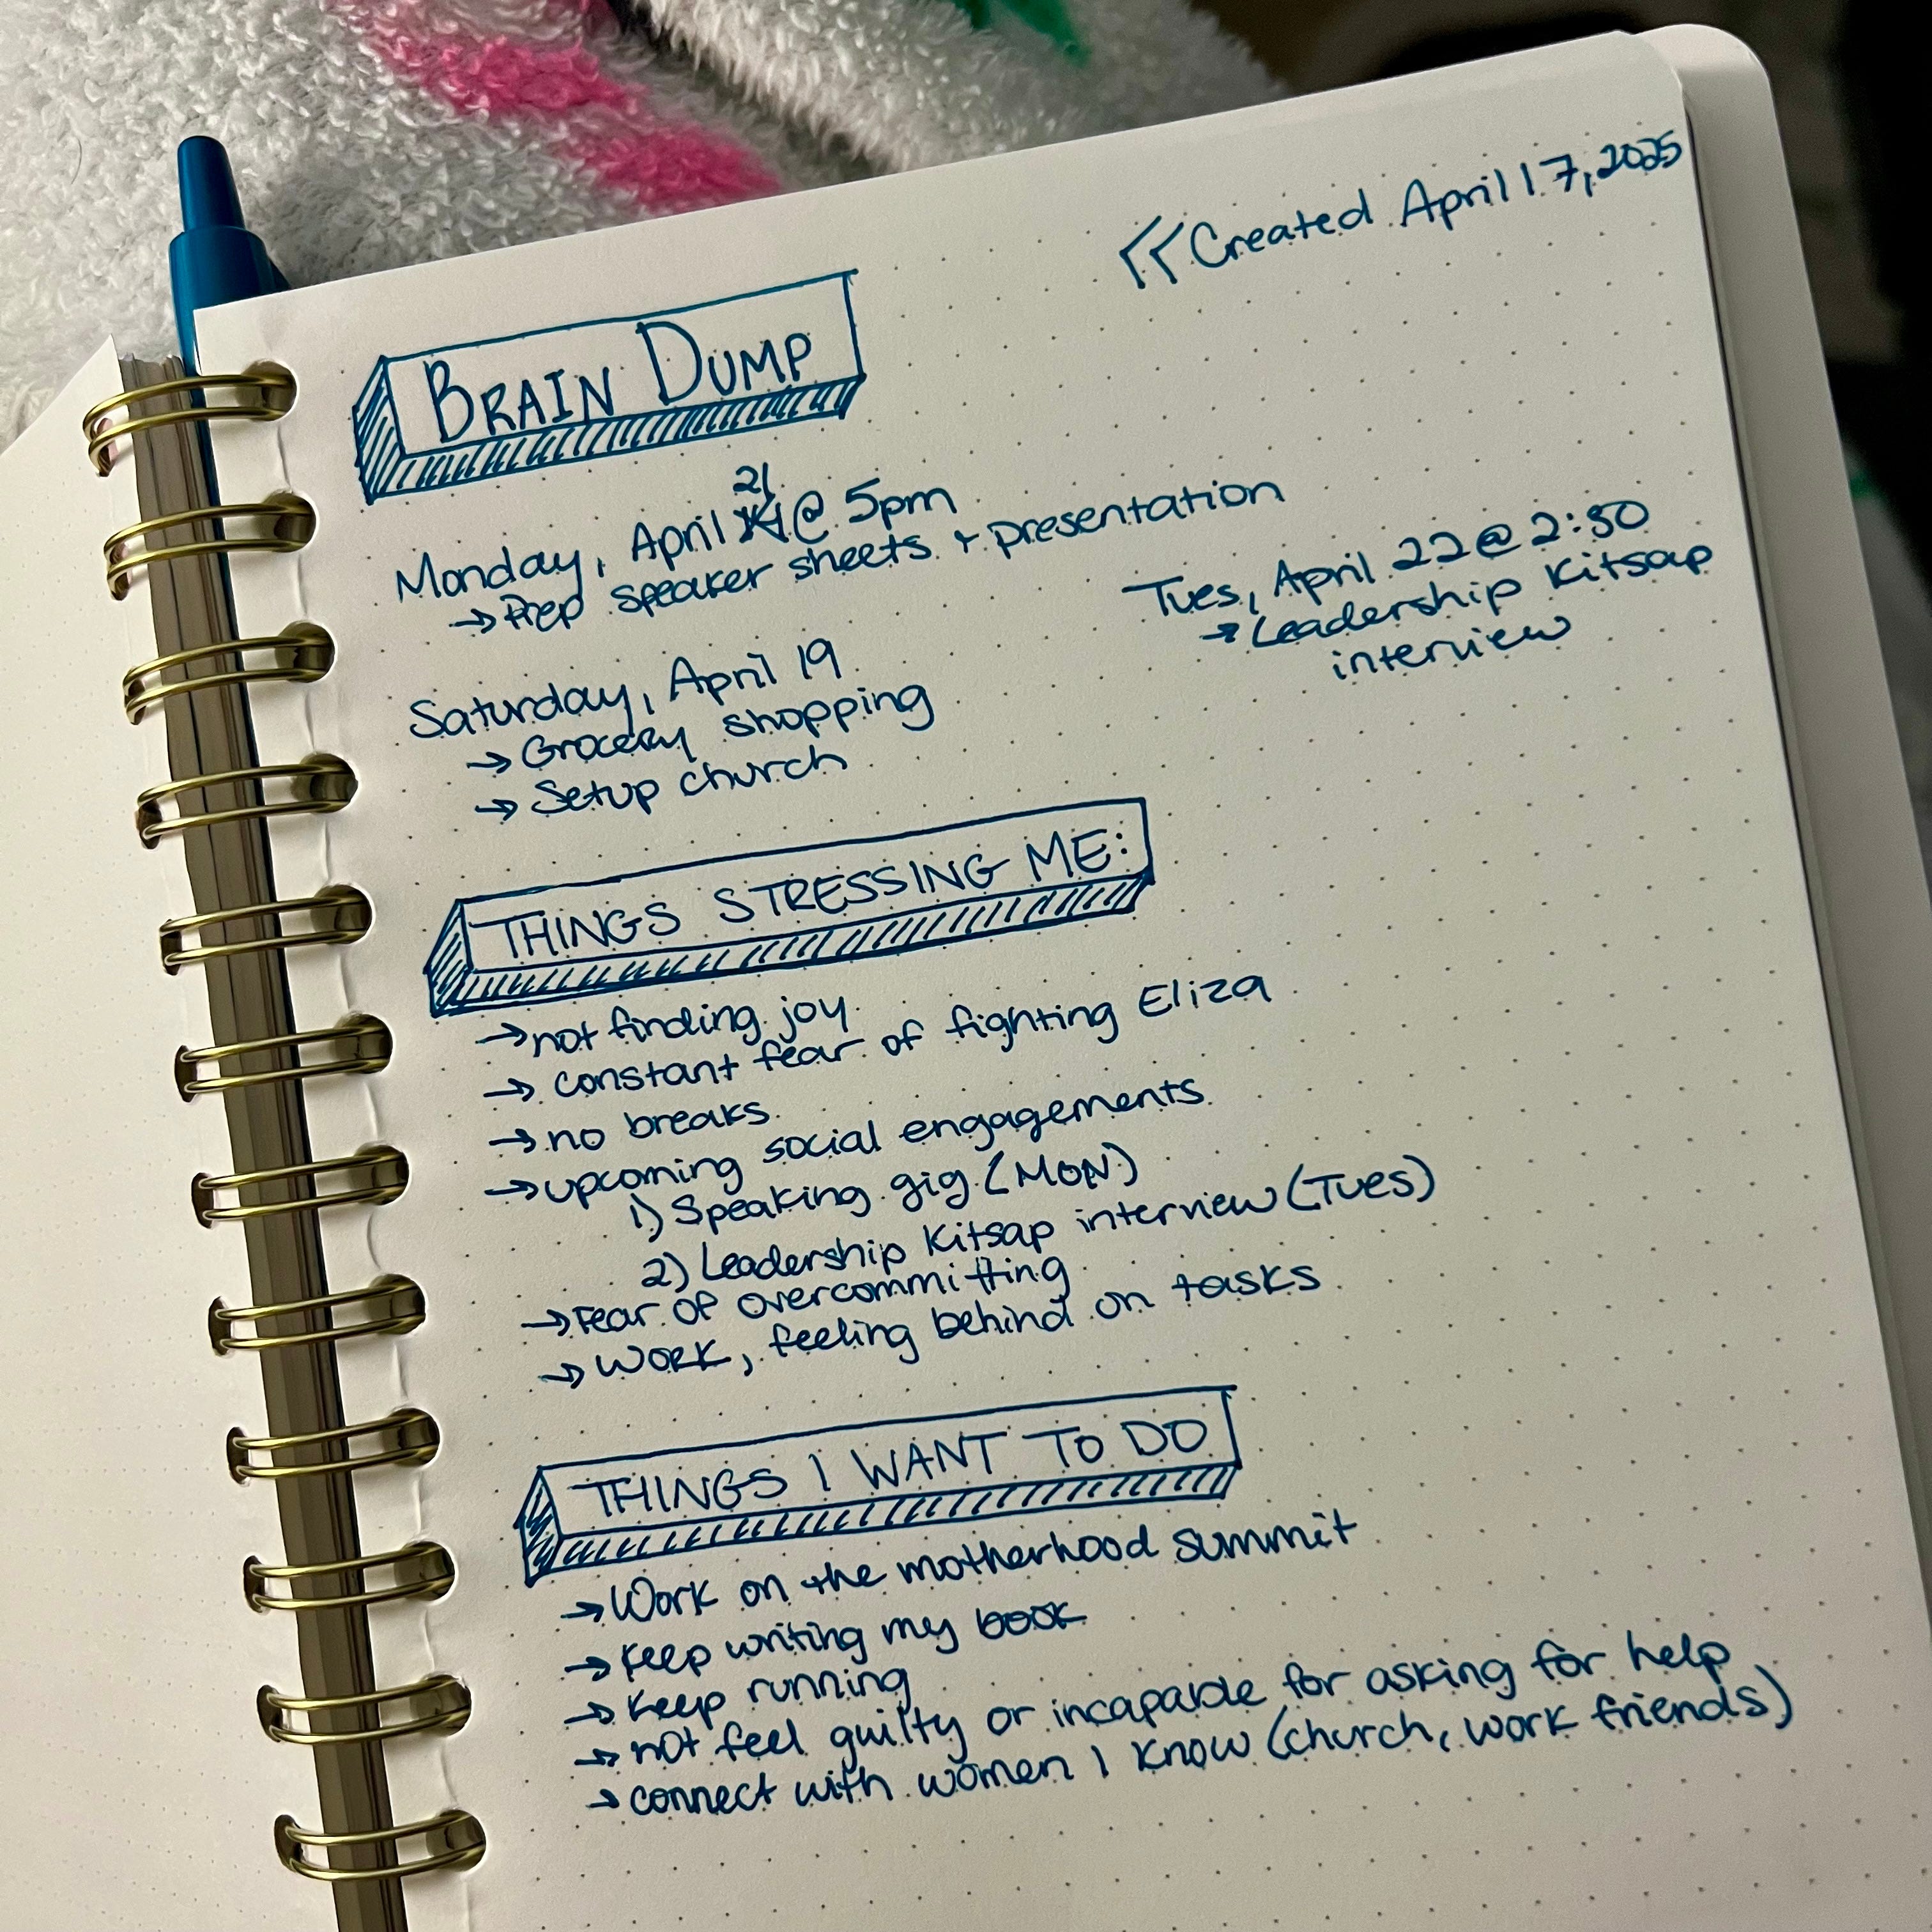 <<Created April 17, 2025
BRAIN DUMP
Monday, April 21 @ 5pm
→ Prep speaker sheets + presentation
Tues, April 22 @ 2:30
→ Leadership Kitsap
interview
Saturday, April 19
→ Grocery shopping
→ Setup church
THINGS STRESSING ME:
→ not finding joy
→ constant fear of fighting Eliza
→ no breaks
→ upcoming social engagements
1) Speaking gig (MON)
2) Leadership Kitsap interview (Tues)
→ Fear of overcommitting
→ Work, feeling behind on tasks
THINGS I WANT TO DO
→ Work on the motherhood summit
→ Keep writing my book
→ Keep running
→ not feel guilty or incapable for asking for help
→ connect with women I know (church, work friends)